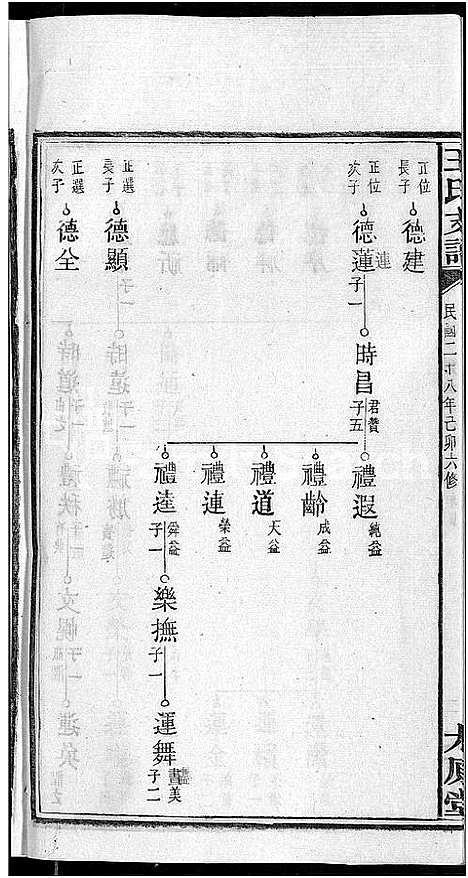 王氏支譜
民國二十八年己卯六修
大原堂
正位 長子 德建
正位 次子 德蓮 連 子一
時昌 君贊 子五
禮遐 純益
禮齡 成益
禮道 天益
禮連 榮益
禮逵 舜益 子一
樂撫 子一
運舞 美 子二
正選 長子 德顯
正選 次子 德全